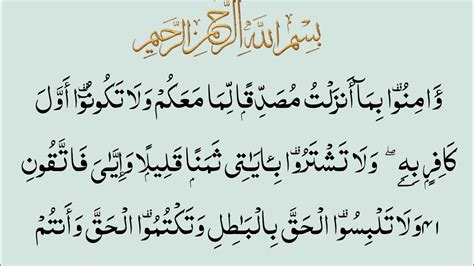 بِسْمِ اللَّهِ الرَّحْمَٰنِ الرَّحِيمِ
وَءَامِنُوا۟ بِمَآ أَنزَلْتُ مُصَدِّقًا لِّمَا مَعَكُمْ وَلَا تَكُونُوٓا۟ أَوَّلَ
كَافِرٍۭ بِهِۦ ۖ وَلَا تَشْتَرُوا۟ بِـَٔايَـٰتِى ثَمَنًا قَلِيلًا وَإِيَّـٰىَ فَٱتَّقُونِ
٤١ وَلَا تَلْبِسُوا۟ الْحَقَّ بِالْبَـٰطِلِ وَتَكْتُمُوا۟ الْحَقَّ وَأَنتُمْ